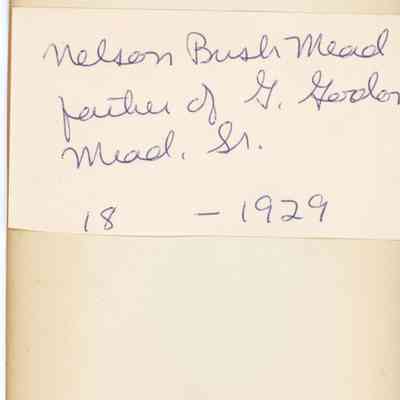 Nelson Bush Mead
father of G. Gordon
Mead, Sr.
18 - 1929